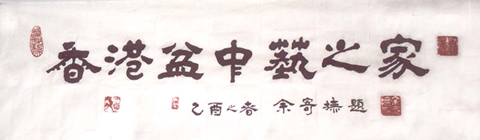 香港盆中藝之家
乙酉之春 余寄撫題